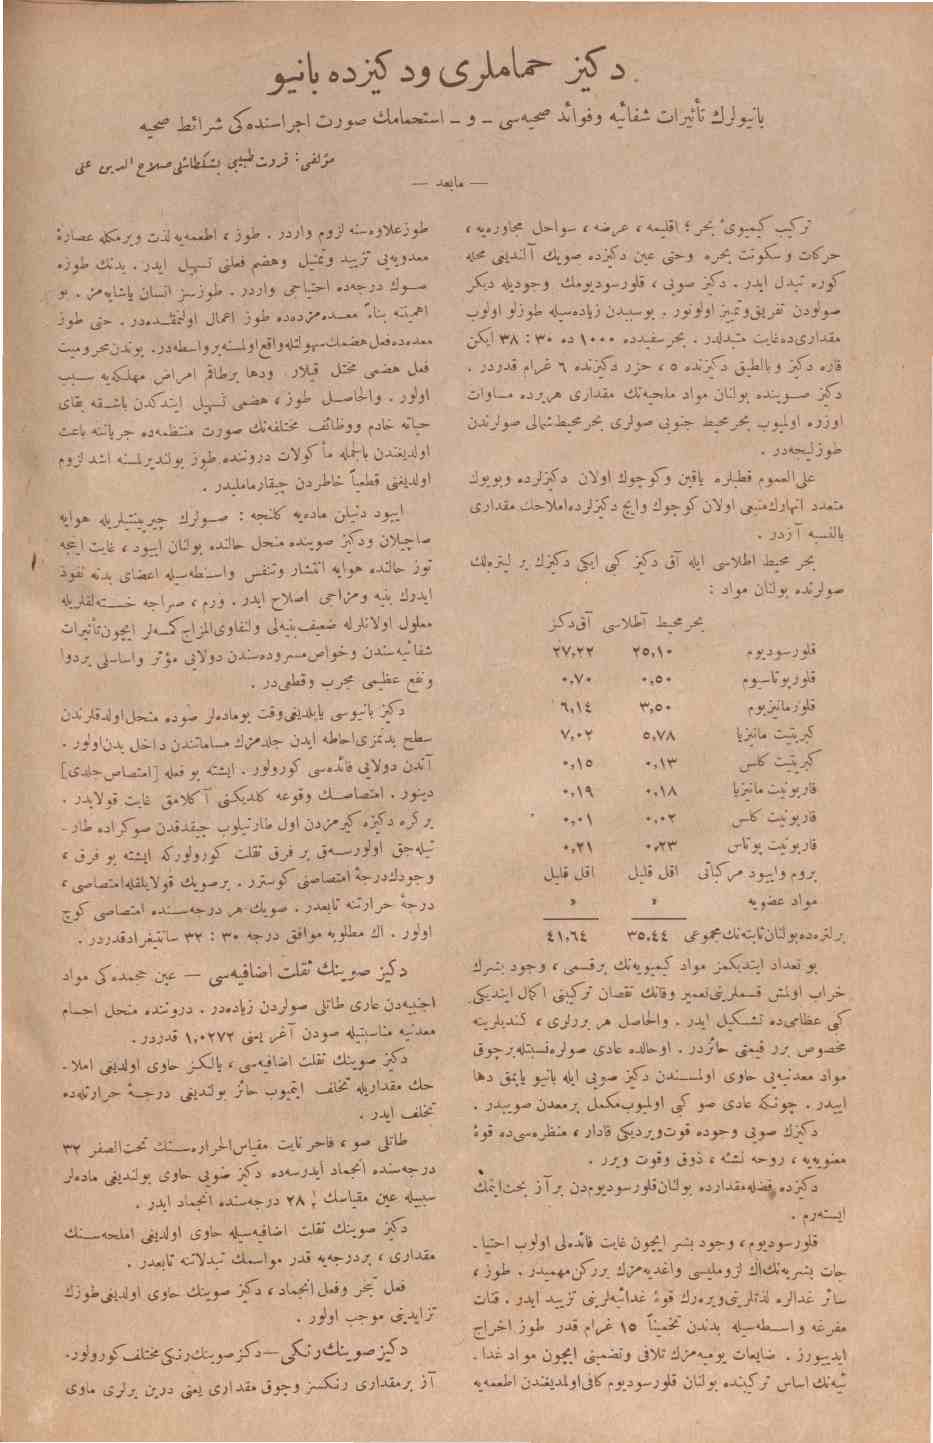 دكيز حماملری ودكيزده بانيو
بانيولرك تأثيرات شفائيه وفوائد صحيه‌سی ـ و ـ استحمامك صورت اجراسنده‌كی شرائط صحيه
مؤلفی: قروت طبيبی بشكطاشلی صلاح الدين علی
— مابعد —
تركيب كيميوئ بحر؛ اقليمه ، عرضه ، سواحل مجاوره‌يه ،
حركات و سكونت بحره وحتی عين دكيزده صويك آلنديغی محله
كوره تبدل ايدر . دكيز صويی ، قلورسوديومك وجوديله ديكر
صولردن تفريق وتمييز اولونور . بوسببدن زياده‌سيله طوزلو اولوب
مقداری ده‌غايت متبدلدر . بحرسفيدده ۱۰۰۰ ده ۳۰ : ۳۸ ايكن
قاره دكيز و بالطيق دكيزنده ۵ ، حزر دكيزنده ۶ غرام قدردر .
دكيز صوينده بولنان مواد ملحيه‌نك مقداری هريرده مساوات
اوزره اولميوب بحرمحيط جنوبی صولری بحرمحيط شمالی صولرندن
طوزليجه‌در .
علی العموم قطبلره ياقين وكوچوك اولان دكيزلرده وبويوك
متعدد انهارك منبعی اولان كوچوك وايچ دكيزلرده‌املاحك مقداری
بالنسبه آزدر .
بحر محيط اطلاسی ايله آق دكيز كبی ايكی دكيزك بر ليتره‌لك
صولرنده بولنان مواد :
بحرمحيط آطلاسی آق‌دكيز
قلورسوديوم ۲۵,۱۰ ۲۷,۲۲
قلورپوتاسيوم ۰,۵۰ ۰,۷۰
قلورمانيزيوم ۳,۵۰ ۶,۱۴
كبريتيت مانيزيا ۵,۷۸ ۷,۰۲
كبريتيت كلس ۰,۱۳ ۰,۱۵
قاربونيت مانيزيا ۰,۱۸ ۰,۱۹
قاربونيت كلس ۰,۰۲ ۰,۰۱
قاربونيت پوتاس ۰,۲۳ ۰,۲۱
بروم وايود مركباتی اقل قليل اقل قليل
مواد عضويه » »
برلتره‌ده‌بولنان ثابته‌نك مجموعی ۳۵,۴۴ ۴۱,۶۴
بو تعداد ايتديكمز مواد كيميويه‌نك برقسمی ، وجود بشرك
خراب اولمش قسملرينی تعمير وقانك نقصان تركيبنی اكمال ايتديكی
كبی عظامی‌ده تشكيل ايدر . والحاصل هر بررلری ، كنديلرينه
مخصوص برر قيمتی حائزدر . اوحالده عادی صولره‌نسبتله‌برچوق
مواد معدنيه‌يی حاوی اولمسندن دكيز صويی ايله بانيو يايمق دها
اييدر . چونكه عادی صو كبی اولميوب مكمل برمعدن صوييدر .
دكيزك صويی وجوده قوت ويرديكی قادار ، منظره‌سی‌ده قوۀ
معنويه‌يه ، روحه نشئه ، ذوق وقوت ويرر .
دكيزده فضله‌مقدارده بولنان قلورسوديوم‌دن برآز بحث ايتمك
ايسته‌رم .
قلورسوديوم ، وجود بشر ايچون غايت فائده‌لی اولوب احتيا‌ـ
جات بشريه‌نك‌اك لزومليسی واغديه‌مزك برركن مهميدر . طوز ،
سائر غدالره لذتلرينی ويره‌رك قوۀ غدائيه‌لرينی تزييد ايدر . قنات
مفرغه واسطه‌سيله بدندن تخميناً ۱۵ غرام قدر طوز اخراج
ايدييورز . ضايعات يوميه‌مزك تلافی وتضمينی ايچون مواد غدا ـ
ئيه‌نك اساس تركيبنده بولنان قلورسوديوم كافی‌اولمديغندن اطعمه‌يه
طوزعلاوه‌سنه لزوم واردر . طوز ، اطعمه‌يه لذت ويرمكله عصارۀ
معدويه‌يی تزييد وتمثيل وهضم فعلنی تسهيل ايدر . بدنك طوزه
صوك درجه‌ده احتياجی واردر . طوزسز انسان ياشايه‌مز . بو
اهميتنه بناءً معده‌مزده‌ده طوز اعمال اولنمقده‌در . حتی طوز
معده‌ده‌فعل هضمك سهولتله‌واقع اولمسنه‌برواسطه‌در. بوندن محروميت
فعل هضمی مختل قيلار . ودها برطاقم امراض مهلكه‌يه سبب
اولور . والحاصل طوز ، هضمی تسهيل ايتدكدن باشقه بقای
حياته خادم ووظائف مختلفه‌نك صورت منتظمه‌ده جرياننه باعث
اولديغندن بالجمله مأكولات دروننده طوز بولنديرلمسنه اشد لزوم
اولديغنی قطعياً خاطردن چيقارماملیدر .
ايود دنيلن ماده‌يه كلنجه : صولرك چيرپينتيلريله هوايه
صاچيلان ودكيز صوينده منحل حالنده بولنان ايود ، غايت اينجه
توز حالنده هوايه انتشار وتنفس واسطه‌سيله اعضای بدنه نفوذ
ايدرك بنيه ومزاجی اصلاح ايدر . ورم ، صراجه خسته‌لقلريله
معلول اولانلرله ضعيف بنيه‌لی ولنفاوی‌المزاج كمسه‌لر ايچون تأثيرات
شفائيه سندن وخواص مسروده‌سندن دولايی مؤثر واساسلی بردوا
ونفع عظيمی مجرب وقطعی‌در .
دكيز بانيوسی ياپلديغی‌وقت بوماده‌لر صوده منحل اولدقلرندن
سطح بدنمزی‌احاطه ايدن جلدمزك مساماتندن داخل بدن‌اولور .
آندن دولايی فائده‌سی كورولور . ايشته بو فعله [امتصاص جلدی]
دينور . امتصاصك وقوعه كلديكنی آكلامق غايت قولايدر .
بركره دكيزه كيرمزدن اول طارتيلوب چيقدقدن صوكراده طارـ
تيله‌جق اولورسه‌ق بر فرق ثقلت كورولوركه ايشته بو فرق ،
وجودك‌درجۀ امتصاصنی كوسترر . برصويك قولايلقله‌امتصاصی ،
درجۀ حرارتنه تابعدر . صويك هر درجه‌سنده امتصاصی كوچ
اولور . اك مطلوبه موافق درجه ۳۰ : ۳۲ سانتيغرادقدردر .
دكيز صوينك ثقلت اضافيه‌سی — عين حجمده‌كی مواد
اجنبيه‌دن عاری طاتلی صولردن زياده‌در . دروننده منحل اجسام
معدنيه مناسبتيله صودن آغر يعنی ۱,۰۲۷۲ قدردر .
دكيز صوينك ثقلت اضافيه‌سی ، يالكز حاوی اولديغی املا ـ
حك مقداريله تخلف ايتميوب حائز بولنديغی درجۀ حرارتله‌ده
تخلف ايدر .
طاتلی صو ، فاحر نايت مقياس الحراره‌سنك تحت‌الصفر ۳۲
درجه‌سنده انجماد ايدرسه‌ده دكيز صويی حاوی بولنديغی ماده‌لر
سببيله عين مقياسك ۲۸ درجه‌سنده انجماد ايدر .
دكيز صوينك ثقلت اضافيه‌سيله حاوی اولديغی املحه‌سنك
مقداری ، بردرجه‌يه قدر مواسمك تبدلاتنه تابعدر .
فعل تبخر وفعل انجماد ، دكيز صوينك حاوی اولديغی‌طوزك
تزايدينی موجب اولور .
دكيز صوينك رنكی —دكزصوينك‌رنكی مختلف كورولور.
آز برمقداری رنكسز وچوق مقداری يعنی درين يرلری ماوی